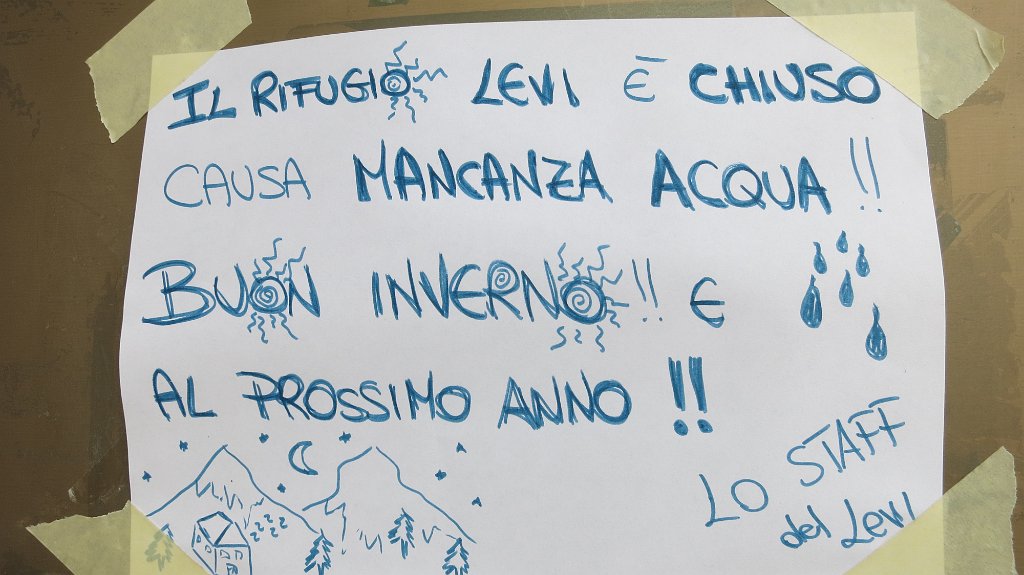 IL RIFUGIO LEVI È CHIUSO
CAUSA MANCANZA ACQUA !!
BUON INVERNO !! E
AL PROSSIMO ANNO !!
LO STAFF
del Levi
zzz
zzz